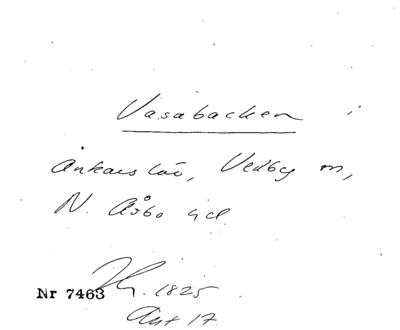 Vasabacken i
Ankarslöv, Vedby sn,
N. Åsbo hd.
1825
Nr 7463
Ant 17